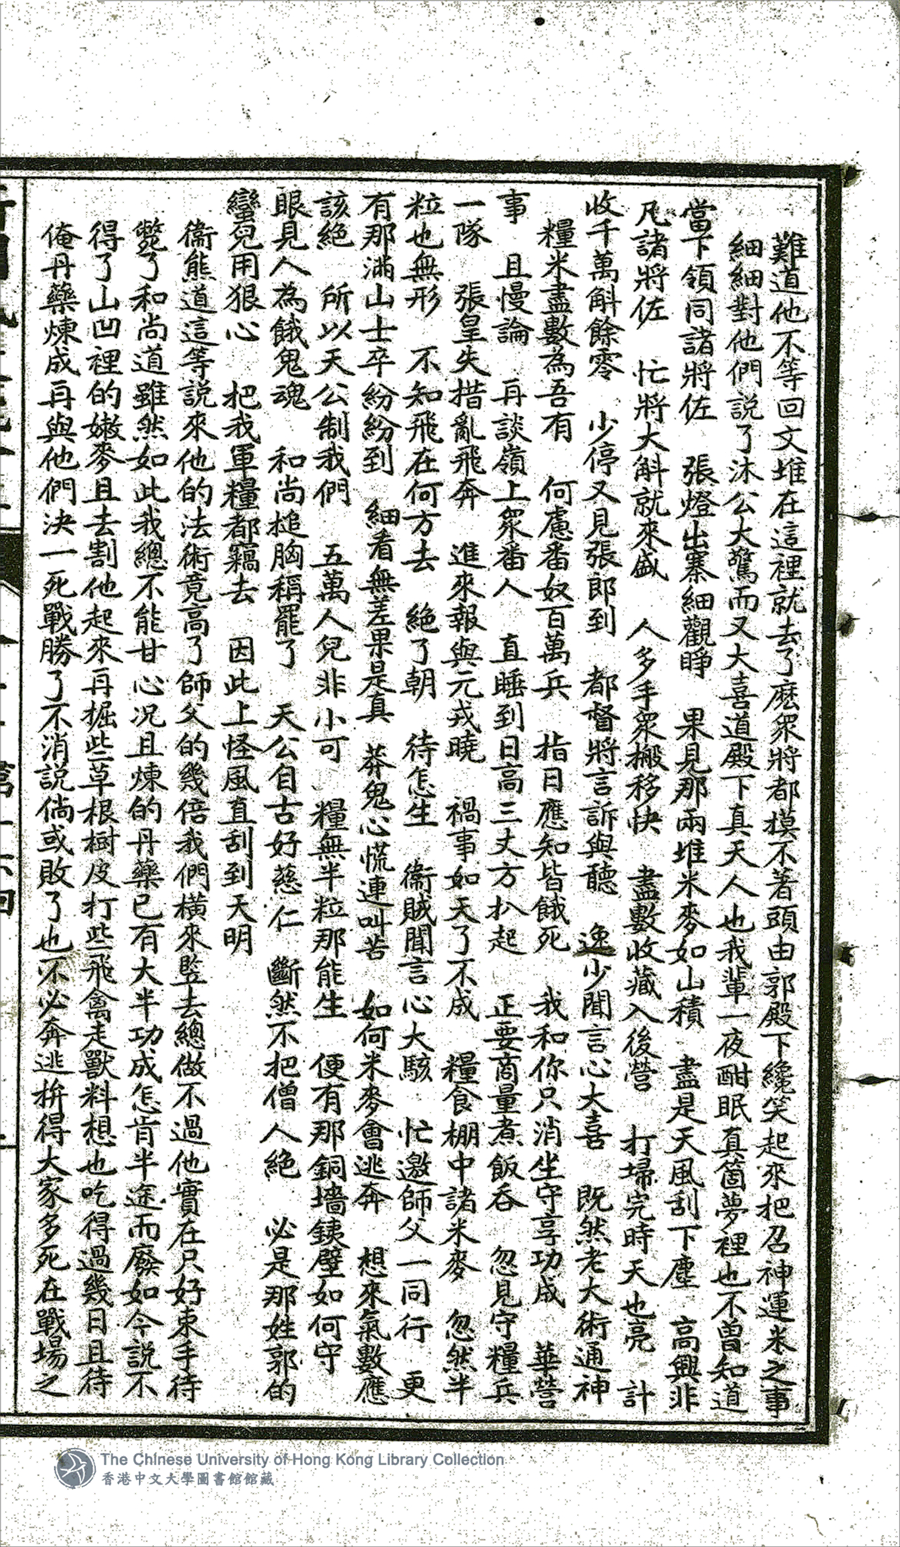 難道他不等回文堆在這裡就去了麽衆將都摸不著頭由郭殿下纔笑起來把召神運米之事
細細對他們說了沐公大驚而又大喜道殿下真天人也我輩一夜酣眠真箇夢裡也不曾知道
當下領同諸將佐　張燈出寨細觀睜　果見那兩堆米麥如山積　盡是天風刮下塵　高興非
凡諸將佐　忙將大斛就來盛　人多手衆搬移快　盡數收藏入後營　打埽完時天也亮　計
收千萬斛餘零　少停又見張郎到　都督將言訴與聽　逸少聞言心大喜　既然老大術通神
糧米盡數為吾有　何慮番奴百萬兵　指日應知皆餓死　我和你只消坐守享功成　華營
事　且慢論　再談嶺上衆番人　直睡到日高三丈方扒起　正要商量煮飯吞　忽見守糧兵
一隊　張皇失措亂飛奔　進來報與元戎曉　禍事如天了不成　糧食棚中諸米麥　忽然半
粒也無形　不知飛在何方去　絕了朝　待怎生　衞賊聞言心大駭　忙邀師父一同行　更
有那滿山士卒紛紛到　細看無差果是真　莽鬼心慌連叫苦　如何米麥會逃奔　想來氣數應
該絕　所以天公制我們　五萬人兒非小可　糧無半粒那能生　便有那銅墻鉄壁如何守
眼見人為餓鬼魂　和尚槌胸稱罷了　天公自古好慈仁　斷然不把僧人絕　必是那姓郭的
蠻兒用狠心　把我軍糧都竊去　因此上怪風直刮到天明
衞熊道這等説來他的法術竟高了師父的幾倍我們橫來竪去總做不過他實在只好束手待
斃了和尚道雖然如此我總不能甘心况且煉的丹藥已有大半功成怎肯半途而廢如今説不
得了山凹裡的嫩麥且去割他起來再掘些草根樹皮打些飛禽走獸料想也吃得過幾日且待
俺丹藥煉成再與他們決一死戰勝了不消説倘或敗了也不必奔逃拚得大家多死在戰場之
The Chinese University of Hong Kong Library Collection
香港中文大學圖書館館藏